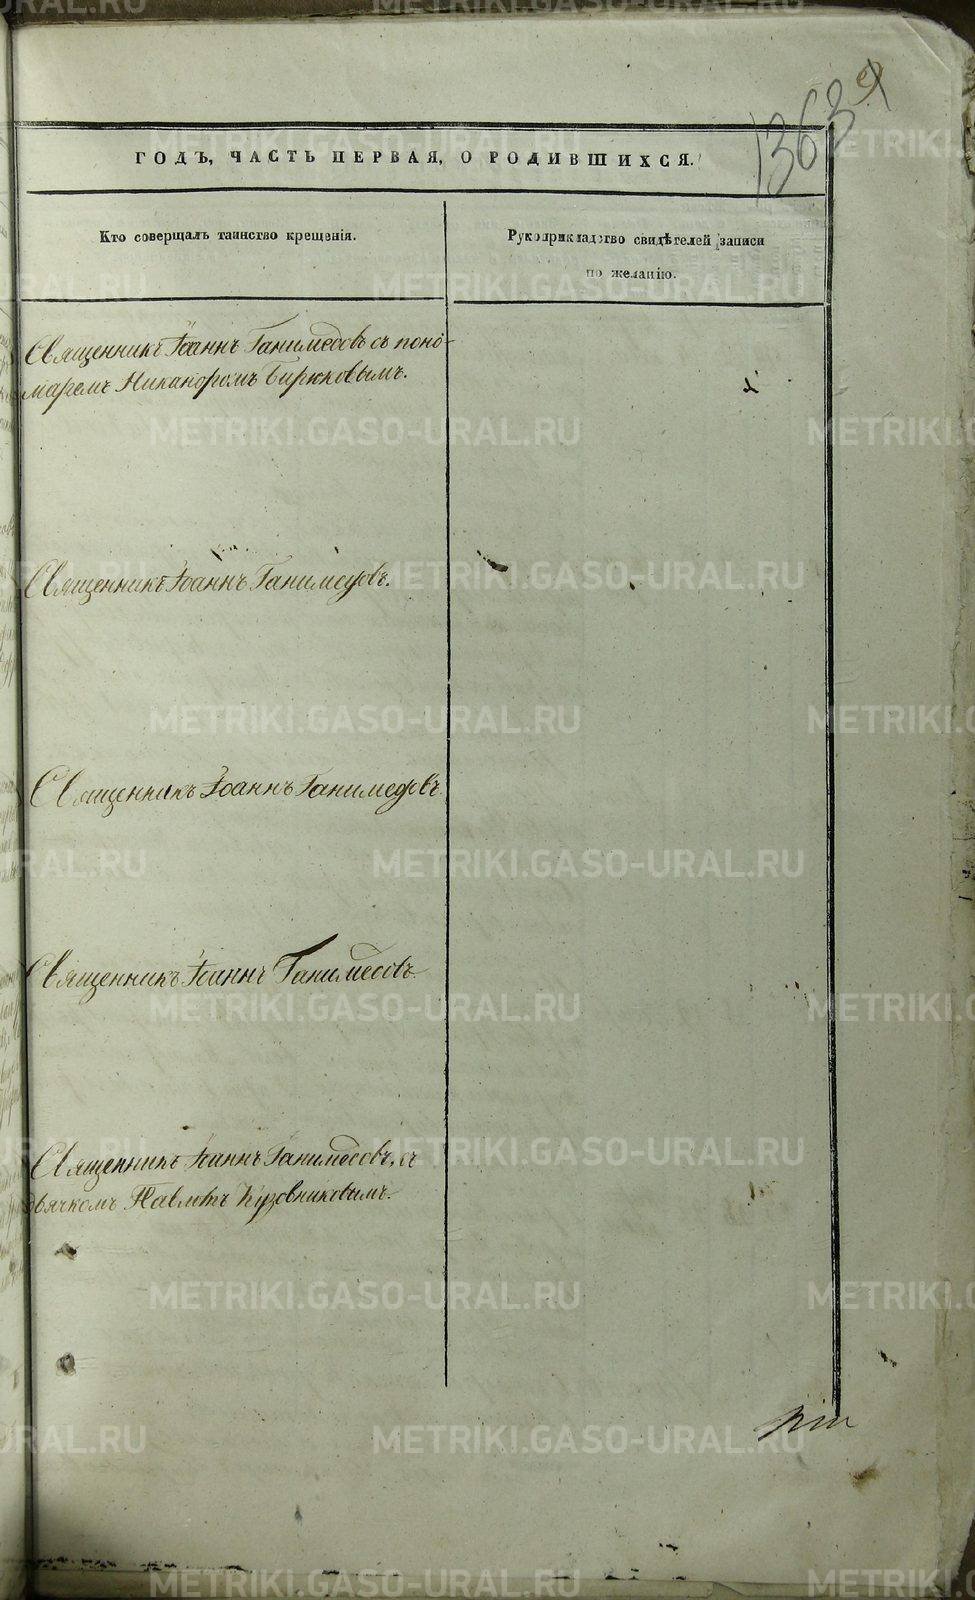 1363
9
ГОДЪ, ЧАСТЬ ПЕРВАЯ, О РОДИВШИХСЯ.
Кто совершалъ таинство крещенія.
Рукоприкладство свидѣтелей записи
по желанію.
Священникъ Іоаннъ Ганимедовъ съ поно-
маремъ Никаноромъ Бирюковымъ.
Священникъ Іоаннъ Ганимедовъ.
Священникъ Іоаннъ Ганимедовъ
Священникъ Іоаннъ Ганимедовъ
Священникъ Іоаннъ Ганимедовъ, съ
дьячкомъ Павломъ Кузовниковымъ.
METRIKI.GASO-URAL.RU